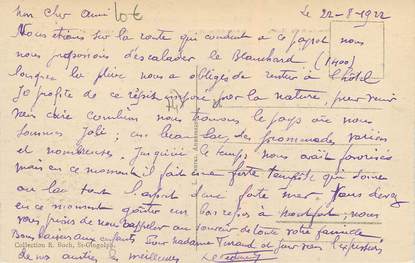 mon cher ami
Le 22-8-1922
Nous étions sur la route qui conduit a ce
nous proposions d'escalader le Blanchard (1400)
lorsque la pluie nous a obligés de rentrer à l'hôtel
Je profite de ce répit par la nature, pour venir
vous dire combien nous trouvons le pays où nous
sommes joli; un beau lac, des promenades variées
et nombreuses. Jusqu'ici le temps nous avait favorisés
mais en ce moment il fait une forte tempête qui donne
au lac tout l'aspect d'une forte mer. Vous devez
en ce moment goûter un bas repos a ; nous
vous prions de nous rappeler au souvenir de toute votre famille
Bons baisers aux enfants Pour madame et pour vous
de nos sentiments les meilleurs
Collection R. Boch, St-Gingolph